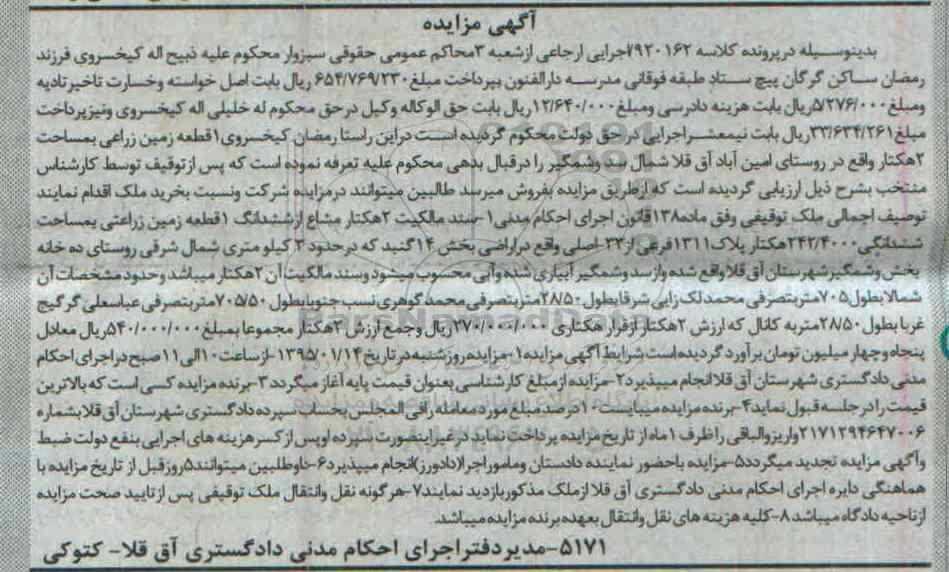 آگهی مزایده
بدینوسیله درپرونده کلاسه ۷۹۲۰۱۶۲اجرایی ارجاعی ازشعبه ۳محاکم عمومی حقوقی سبزوار محکوم علیه ذبیح اله کیخسروی فرزند
رمضان ساکن گرگان پیچ ستاد طبقه فوقانی مدرسه دارالفنون بپرداخت مبلغ۶۵۴/۷۶۹/۲۳۰ ریال بابت اصل خواسته وخسارت تاخیرتادیه
ومبلغ۵/۲۷۶/۰۰۰ریال بابت هزینه دادرسی ومبلغ۱۲/۶۴۰/۰۰۰ریال بابت حق الوکاله وکیل درحق محکوم له خلیلی اله کیخسروی ونیزپرداخت
مبلغ۳۳/۶۳۴/۲۶۱ریال بابت نیمعشراجرایی درحق دولت محکوم گردیده است دراین راستا رمضان کیخسروی۱قطعه زمین زراعی بمساحت
۲هکتار واقع در روستای امین آباد آق قلا شمال سد وشمگیر را درقبال بدهی محکوم علیه تعرفه نموده است که پس ازتوقیف توسط کارشناس
منتخب بشرح ذیل ارزیابی گردیده است که ازطریق مزایده بفروش میرسد طالبین میتوانند درمزایده شرکت ونسبت بخرید ملک اقدام نمایند
توصیف اجمالی ملک توقیفی وفق ماده۱۳۸قانون اجرای احکام مدنی۱-سند مالکیت ۲هکتار مشاع ازششدانگ ۱قطعه زمین زراعتی بمساحت
ششدانگی۲۴۲/۴۰۰۰هکتار پلاک۱۳۱۱فرعی از۳۳-اصلی واقع دراراضی بخش ۱۴گنبد که درحدود ۳ کیلو متری شمال شرقی روستای ده خانه
بخش وشمگیرشهرستان آق قلا واقع شده وازسد وشمگیر آبیاری شده وآبی محسوب میشود وسند مالکیت آن ۲هکتار میباشد وحدود مشخصات آن
شمالا بطول۷۰۵متربتصرفی محمد لک زایی شرقا بطول ۲۸/۵۰متربتصرفی محمد گوهری نسب جنوبا بطول ۷۰۵/۵۰متربتصرفی عباسعلی گرگیج
غربا بطول ۲۸/۵۰متر به کانال که ارزش ۲هکتار ازقرار هکتاری ۲۷۰/۰۰۰/۰۰۰ریال وجمع ارزش ۲هکتار مجموعا بمبلغ۵۴۰/۰۰۰/۰۰۰ریال معادل
پنجاه وچهار میلیون تومان برآورد گردیده است شرایط آگهی مزایده۱-مزایده روزشنبه در تاریخ ۱۳۹۵/۰۱/۱۴-ازساعت۱۰الی۱۱صبح دراجرای احکام
مدنی دادگستری شهرستان آق قلا انجام میپذیرد۲-مزایده ازمبلغ کارشناسی بعنوان قیمت پایه آغاز میگردد۳-برنده مزایده کسی است که بالاترین
قیمت را در جلسه قبول نماید۴-برنده مزایده میبایست ۱۰درصد مبلغ مورد معامله رافی المجلس بحساب سپرده دادگستری شهرستان آق قلا بشماره
۲۱۷۱۲۹۴۶۴۷۰۰۶واریز والباقی را ظرف ۱ماه از تاریخ مزایده پرداخت نماید درغیراینصورت سپرده او پس ازکسرهزینه های اجرایی بنفع دولت ضبط
وآگهی مزایده تجدید میگردد۵-مزایده باحضور نماینده دادستان وماموراجرا(دادورز)انجام میپذیرد۶-داوطلبین میتوانند۵روزقبل از تاریخ مزایده با
هماهنگی دایره اجرای احکام مدنی دادگستری آق قلا ازملک مذکوربازدید نمایند۷-هرگونه نقل وانتقال ملک توقیفی پس ازتایید صحت مزایده
ازناحیه دادگاه میباشد۸-کلیه هزینه های نقل وانتقال بعهده برنده مزایده میباشد.
۵۱۷۱-مدیردفتراجرای احکام مدنی دادگستری آق قلا- کتوکی
ParsNamadData